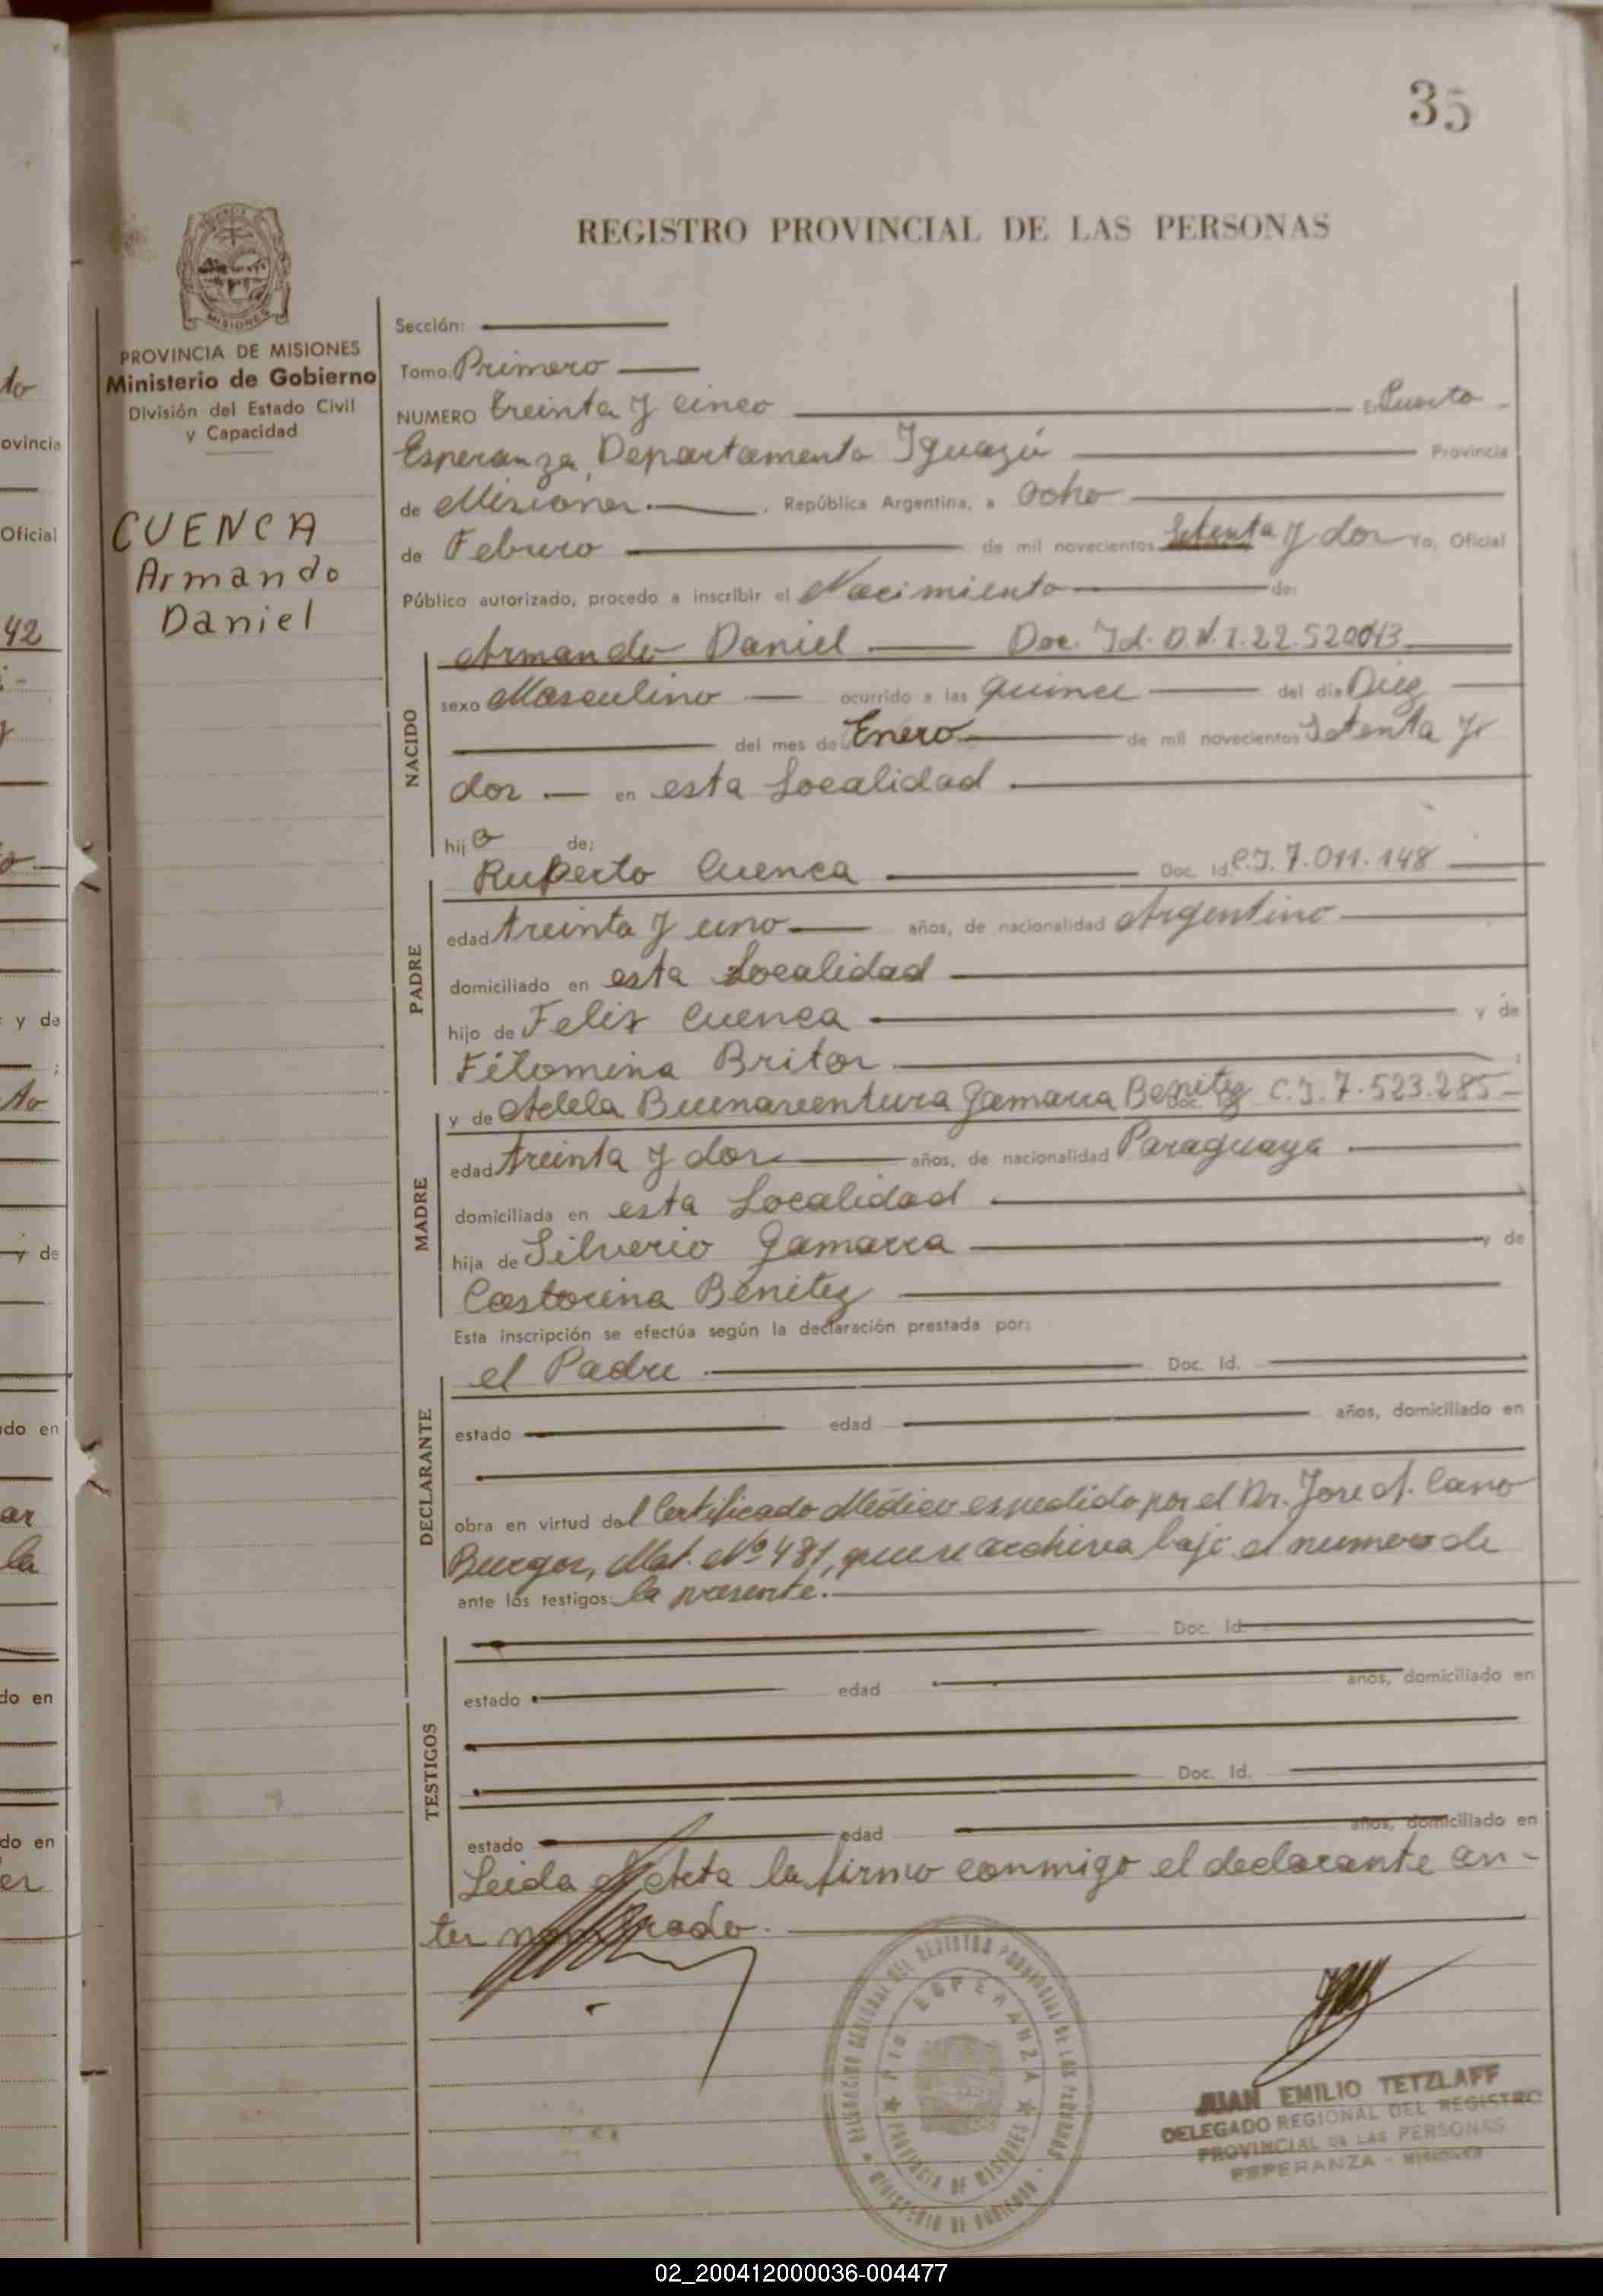 35
REGISTRO PROVINCIAL DE LAS PERSONAS
MISIONES
PROVINCIA DE MISIONES
Ministerio de Gobierno
División del Estado Civil
y Capacidad
CUENCA
Armando
Daniel
Sección:
Tomo: Primero
NUMERO treinta y cinco Puerto
Esperanza, Departamento Iguazú Provincia
de Misiones. República Argentina, a Ocho
de Febrero de mil novecientos Setenta y dos Yo, Oficial
Público autorizado, procedo a inscribir el Nacimiento de:
NACIDO
Armando Daniel Doc. Id. D.N.I. 22.520013
sexo Masculino ocurrido a las quince del día Diez
del mes de Enero de mil novecientos Setenta y
dos. en esta Localidad
hijo de:
PADRE
Ruperto Cuenca Doc. Id. C.I. 7.011.148
edad treinta y uno años, de nacionalidad Argentino
domiciliado en esta Localidad
hijo de Felix Cuenca y de
Filomena Britos ;
MADRE
y de Adela Buenaventura Gamarra Benitez C.I. 7.523.285
edad treinta y dos años, de nacionalidad Paraguaya
domiciliada en esta Localidad
hija de Silverio Gamarra y de
Castorina Benitez
Esta inscripción se efectúa según la declaración prestada por:
DECLARANTE
el Padre Doc. Id.
estado edad años, domiciliado en
obra en virtud del Certificado Médico espedido por el Dr. Jose A. Cano
Burgos, Mat. Nº 481, que se archiva bajo el numero de
ante los testigos: la presente.
TESTIGOS
Doc. Id.
estado edad años, domiciliado en
Doc. Id.
estado edad años, domiciliado en
Leida el Acta la firmo conmigo el declarante an-
tes nombrado.
DELEGACION REGIONAL DEL REGISTRO PROVINCIAL DE LAS PERSONAS
PTO ESPERANZA
PROVINCIA DE MISIONES
MINISTERIO DE GOBIERNO
JUAN EMILIO TETZLAFF
DELEGADO REGIONAL DEL REGISTRO
PROVINCIAL DE LAS PERSONAS
ESPERANZA - MISIONES
to
ovincia
Oficial
42
y de
to
y de
do en
ar
la
do en
do en
er
02_200412000036-004477